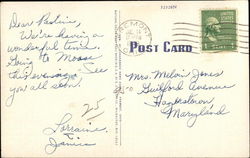 Dear Pauline,
We're having a
wonderful time.
Going to Moose
this evening. See
you all soon.
25
Lorraine &
Janice
POST CARD
Mrs. Melvin Jones
Guilford Avenue
Hagerstown,
Maryland